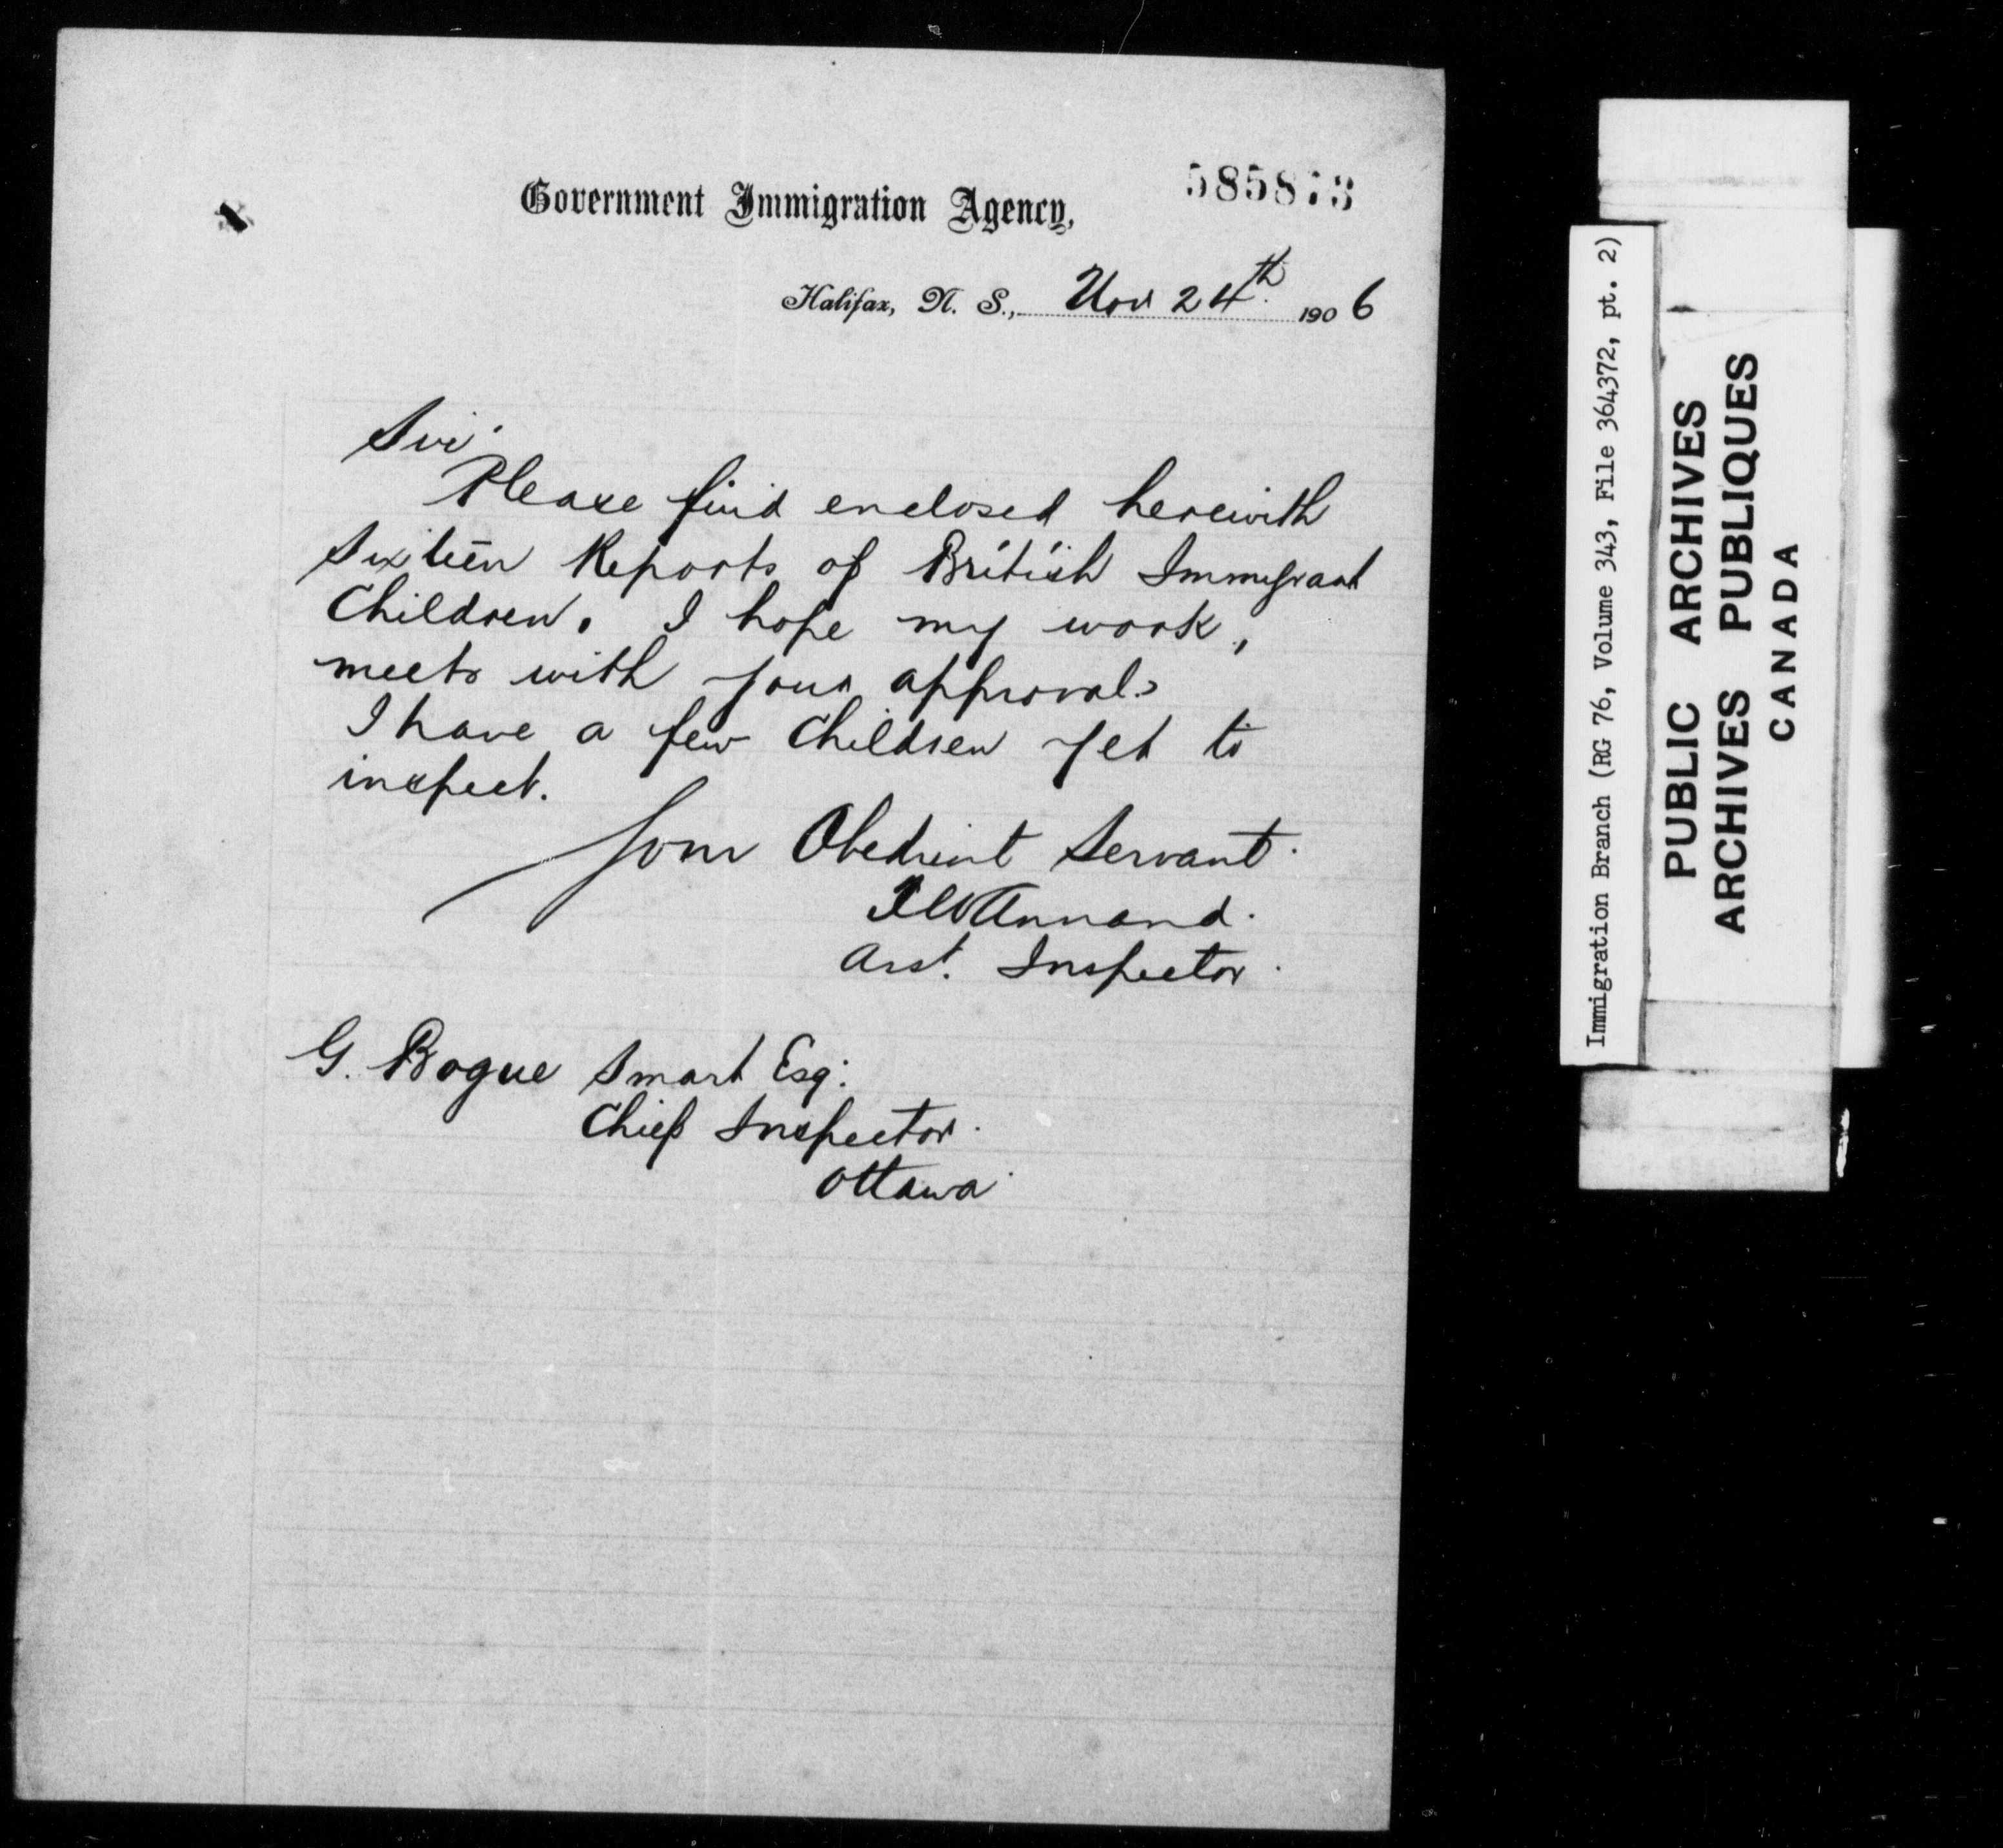 Government Immigration Agency,
585873
Halifax, N. S., Nov 24th 1906
Sir
Please find enclosed herewith
Sixteen Reports of British Immigrant
Children. I hope my work,
meets with your approval.
I have a few Children yet to
inspect.
Your Obedient Servant.
Annand.
Asst. Inspector.
G. Bogue Smart Esq.
Chief Inspector.
Ottawa
Immigration Branch (RG 76, Volume 343, File 364372, pt. 2)
PUBLIC ARCHIVES
ARCHIVES PUBLIQUES
CANADA